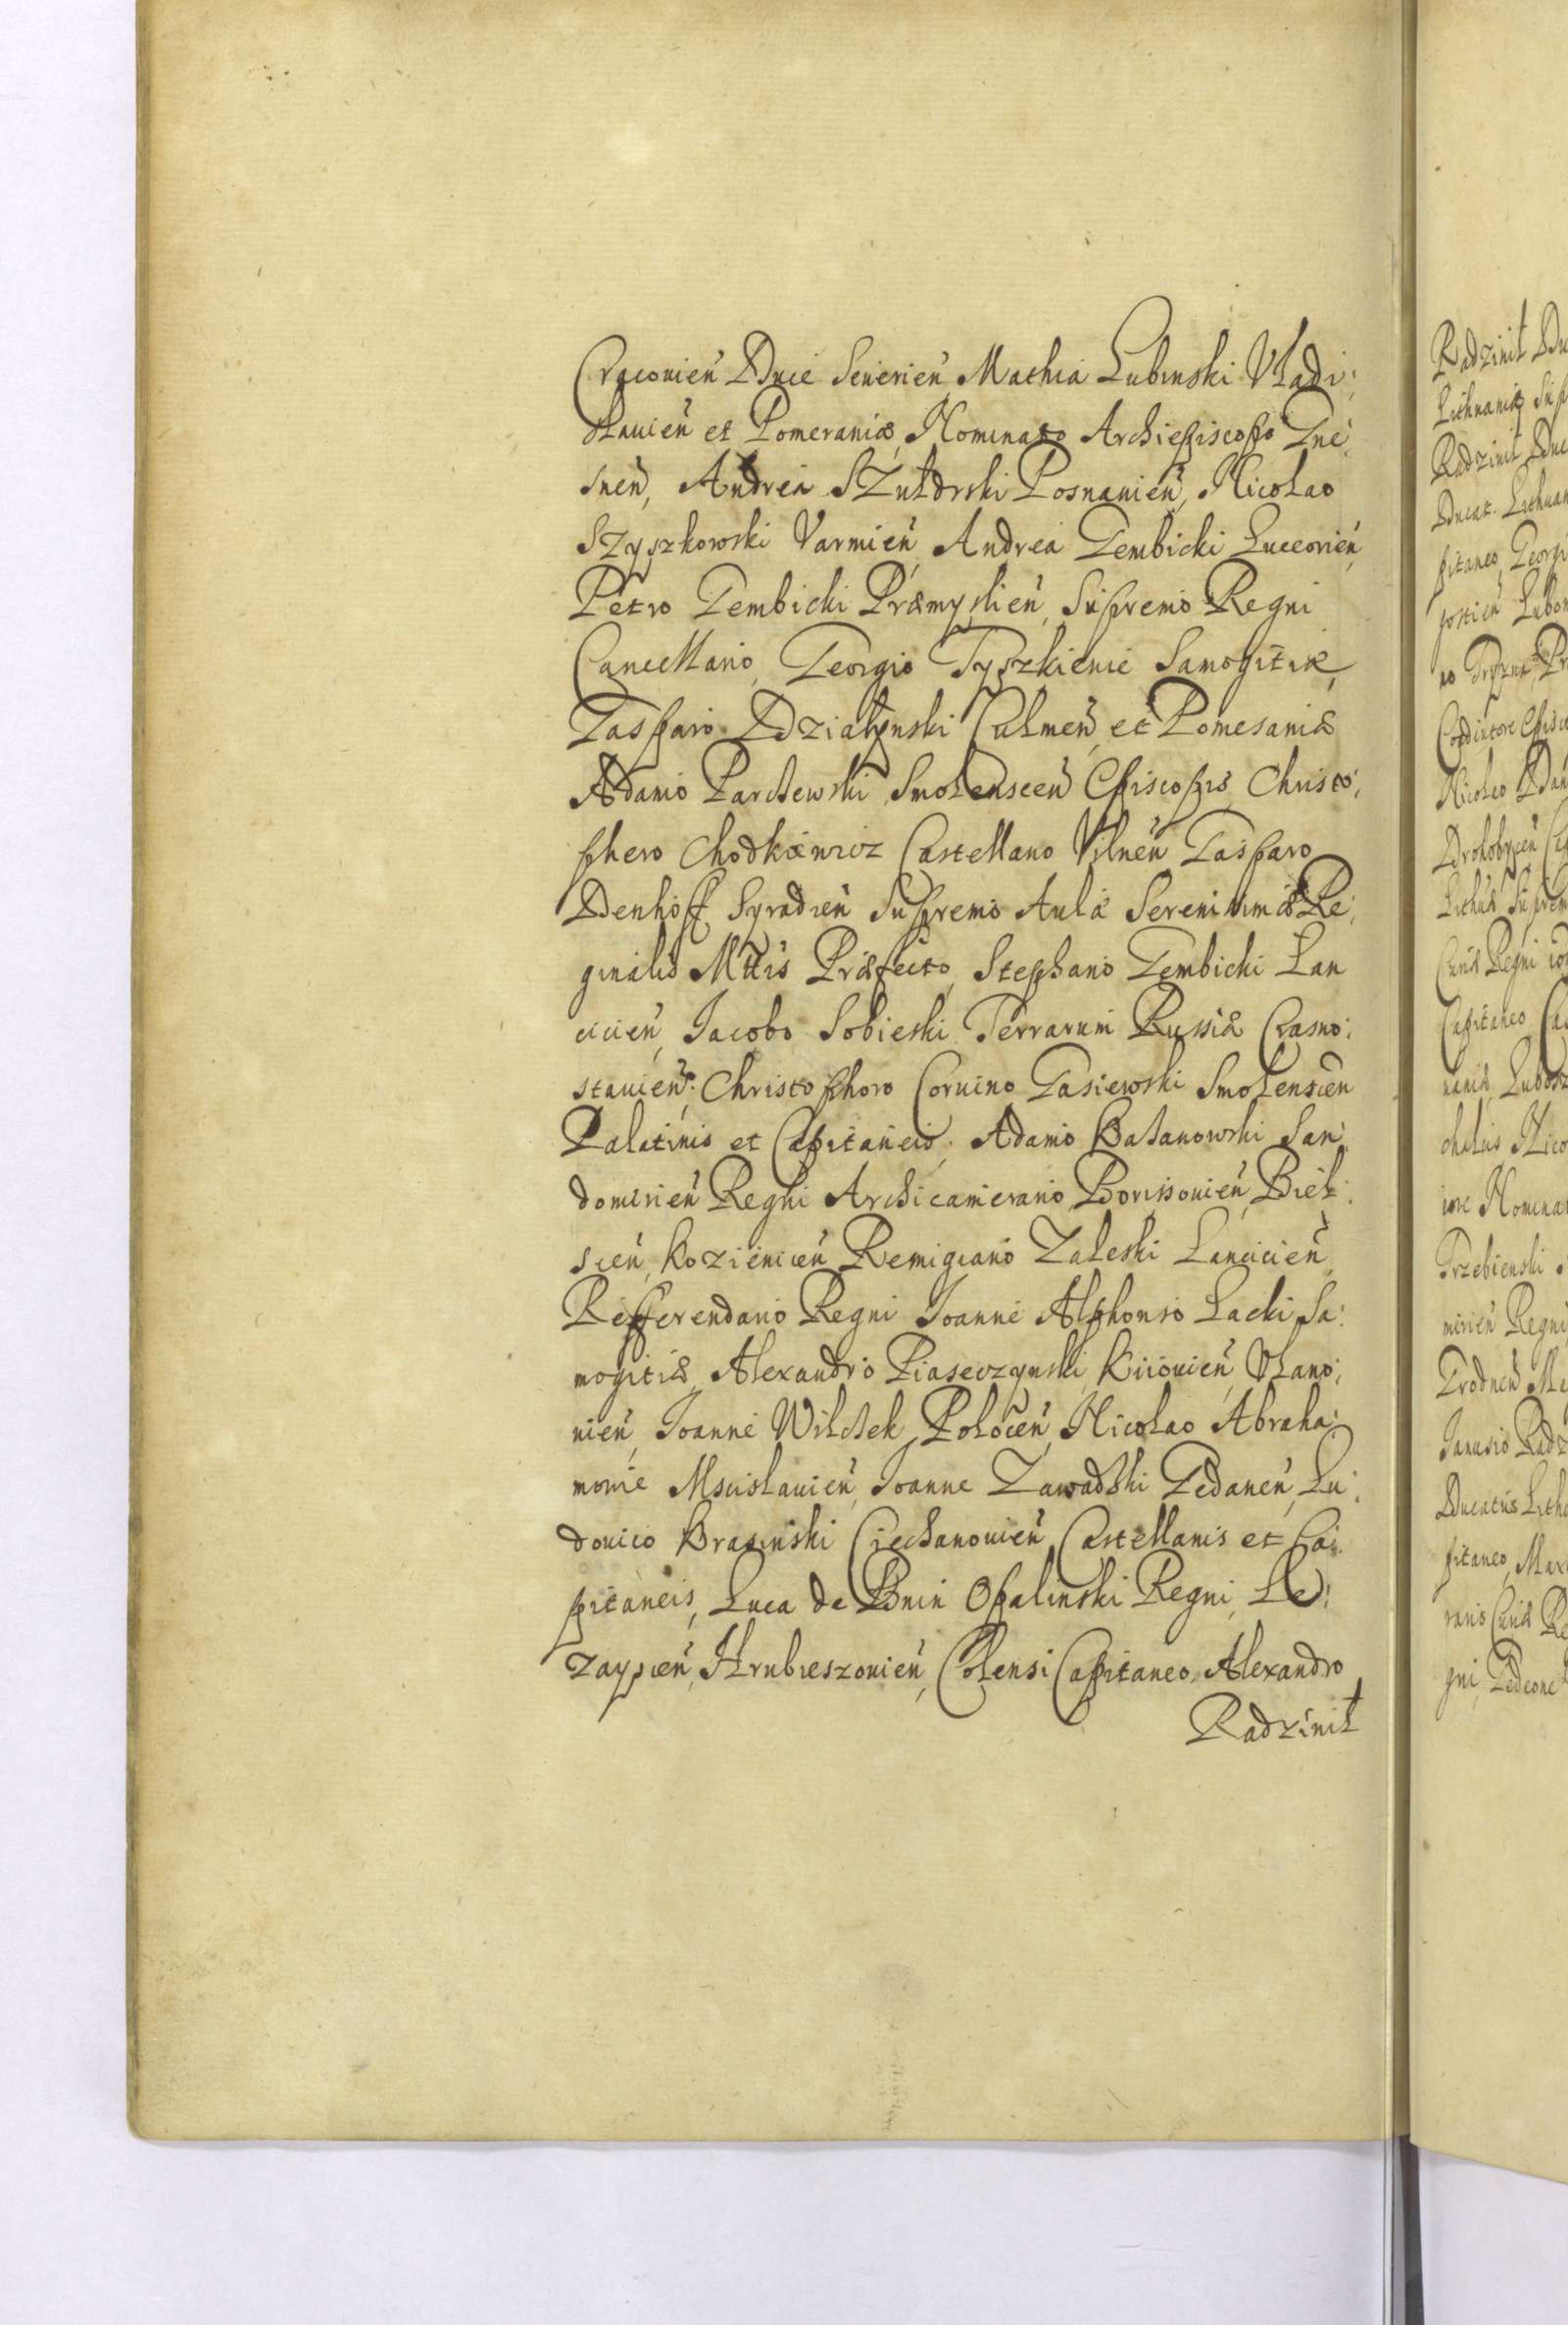 Cracovien̄ Duce Severien̄, Mathia Lubinski Vladi:
slavien̄ et Pomeraniæ, Nominato Archiepiscopo Gne:
snen̄, Andrea SZuldrski Posnanien̄, Nicolao
SZyszkowski Varmien̄, Andrea Gembicki Luceorien̄,
Petro Gembicki Præmyslien̄, Supremo Regni
Cancellario, Georgio Tyszkievic Samogitiæ,
Gasparo Działynski Culmen̄, et Pomesaniæ
Adamo Parchewski Smolenscen̄ Episcopis, Christo:
phero Chodkiewicz Castellano Vilnen̄ Gasparo
Denhoff Syradien̄ Supremo Aulæ Serenissimæ Re:
ginalis Mttis Præfecto, Stephano Gembicki Lan
cicien̄, Jacobo Sobieski Terrarum Russiæ Crasno:
stavien̄: Christophoro Corvino Gasiewski Smolenscen
Palatinis et Capitaneis, Adamo Kasanowski San:
domirien̄ Regni Archicamerario, Borissovien̄, Biel:
scen̄, Kozienicen̄ Remigiano Zaleski Lancicien̄,
Refferendario Regni Joanne Alphonso Lacki Sa:
mogitiæ, Alexandro Piaseczynski, Kiiovien̄, Ulano:
vien̄, Joanne Wilchek, Polocen̄, Nicolao Abraha:
movic Mscislavien̄, Joanne Zawadski Gedanen̄, Lu:
dovico Krasinski Ciechanovien̄ Castellanis et Ca:
pitaneis, Luca de Bnin Opalinski Regni, Le:
zayscen̄, Hrubieszovien̄, Colensi Capitaneo, Alexandro
Radzivil
Radzivil Du
Lithuaniæ Sup
Radzivil Duc
Ducat. Lithuan
pitaneo, Georgi
Lubom
no Tryzna, Pr
Coadiutore Episco
Nicolao Dan
Drohobycen̄ Ca
Lithuæ Suprem
Curiæ Regni
Capitaneo, Ca
Nico
Nomina
Trzebienski
mirien̄ Regni
Grodnen̄ Ma
Janusio Radz
Ducatus Lithu
pitaneo, Max
rario Curiæ Re
gni, Gedeone